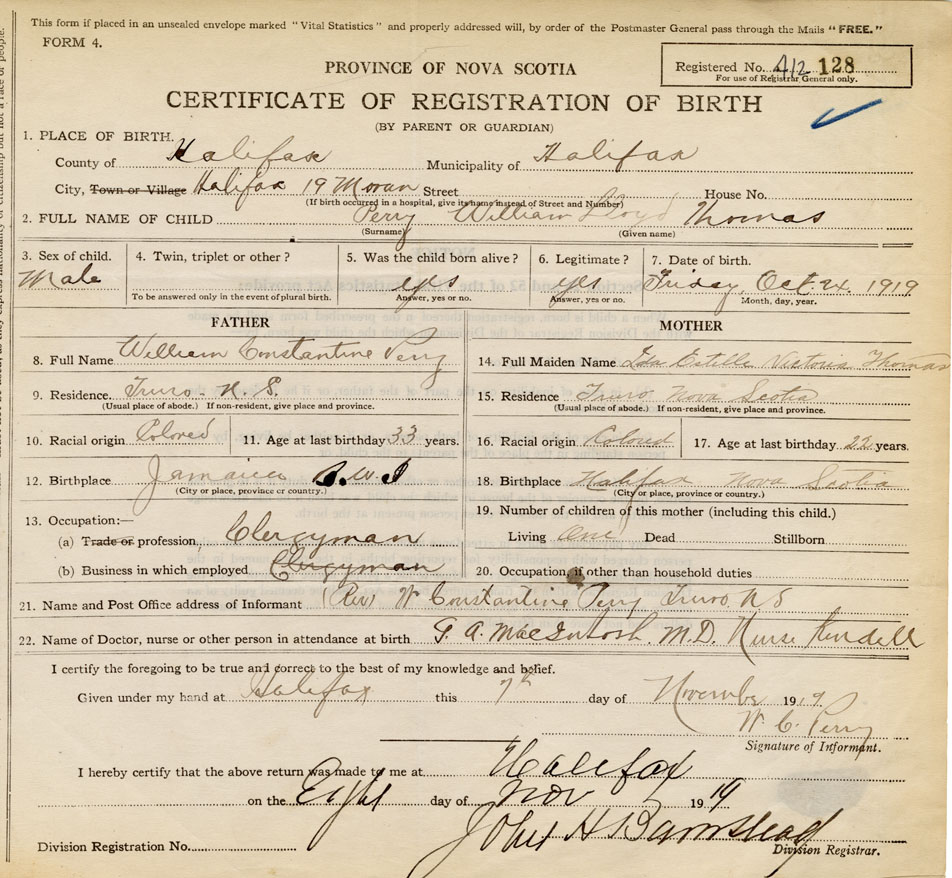 This form if placed in an unsealed envelope marked "Vital Statistics" and properly addressed will, by order of the Postmaster General pass through the Mails "FREE."
FORM 4.
Registered No. 412 128
For use of Registrar General only.
PROVINCE OF NOVA SCOTIA
CERTIFICATE OF REGISTRATION OF BIRTH
(BY PARENT OR GUARDIAN)
1. PLACE OF BIRTH.
County of Halifax Municipality of Halifax
City, Town or Village Halifax 19 Moran Street House No.
(If birth occurred in a hospital, give its name instead of Street and Number)
2. FULL NAME OF CHILD Perry William Lloyd Thomas
(Surname) (Given name)
3. Sex of child. 4. Twin, triplet or other? 5. Was the child born alive? 6. Legitimate? 7. Date of birth.
Male yes yes Friday, Oct. 24. 1919
To be answered only in the event of plural birth. Answer, yes or no. Answer, yes or no. Month, day, year.
FATHER MOTHER
8. Full Name William Constantine Perry 14. Full Maiden Name Ida Estelle Victoria Thomas
9. Residence. Truro. N. S. 15. Residence Truro Nova Scotia
(Usual place of abode.) If non-resident, give place and province. (Usual place of abode.) If non-resident, give place and province.
10. Racial origin Colored 11. Age at last birthday 33 years. 16. Racial origin Colored 17. Age at last birthday 22 years.
12. Birthplace Jamaica B.W.I 18. Birthplace Halifax Nova Scotia
(City or place, province or country.) (City or place, province or country.)
13. Occupation:— 19. Number of children of this mother (including this child.)
(a) Trade or profession, Clergyman Living One Dead Stillborn
(b) Business in which employed Clergyman 20. Occupation, if other than household duties
21. Name and Post Office address of Informant (Rev) W Constantine Perry Truro, N S
22. Name of Doctor, nurse or other person in attendance at birth F. A. MacIntosh. M.D. Nurse Kendell
I certify the foregoing to be true and correct to the best of my knowledge and belief.
Given under my hand at Halifax this 7th day of November 1919
W. C. Perry
Signature of Informant.
I hereby certify that the above return was made to me at Halifax
on the Eight day of Nov 1919
John H Barnstead
Division Registration No. Division Registrar.